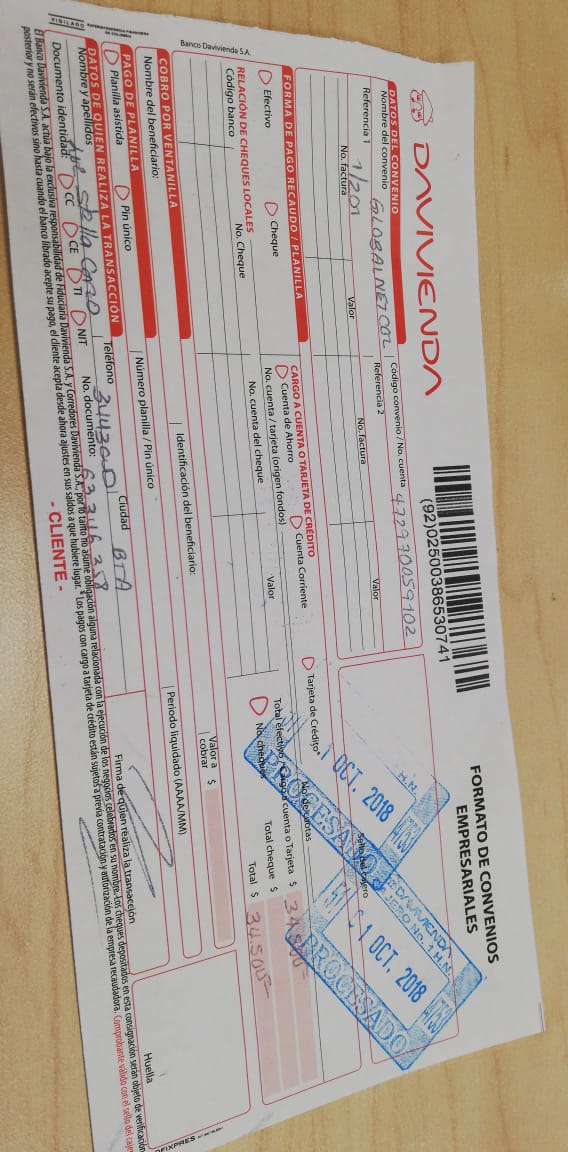 DAVIVIENDA
(92)02500386530741
FORMATO DE CONVENIOS
EMPRESARIALES
DATOS DEL CONVENIO
Nombre del convenio GLOBALNETCOL
Código convenio / No. cuenta
Referencia 1 1/201
Referencia 2
No. factura Valor No. factura Valor
Sello del cajero
H.N.
1 OCT. 2018
PROCESADO
DAVIVIENDA
CAJERO No. 1 H.N.
01 OCT. 2018
PROCESADO
FORMA DE PAGO RECAUDO / PLANILLA
Efectivo Cheque
CARGO A CUENTA O TARJETA DE CRÉDITO
Cuenta de Ahorro Cuenta Corriente Tarjeta de Crédito
No. de cuotas
No. cuenta / tarjeta (origen fondos) Valor
Total efectivo / Cargo a cuenta o Tarjeta $ 34.500
RELACIÓN DE CHEQUES LOCALES
Código banco No. Cheque No. cuenta del cheque
No. cheques Total cheque $
Total $ 34.500
Banco Davivienda S.A.
COBRO POR VENTANILLA
Nombre del beneficiario: Identificación del beneficiario:
Valor a cobrar $
PAGO DE PLANILLA
Planilla asistida Pin único Número planilla / Pin único Periodo liquidado (AAAA/MM)
DATOS DE QUIEN REALIZA LA TRANSACCIÓN
Nombre y apellidos Stella Teléfono Ciudad BTA
Documento identidad: CC CE TI NIT No. documento:
Firma de quien realiza la transacción
Huella
El Banco Davivienda S.A. actúa bajo la exclusiva responsabilidad de Fiduciaria Davivienda S.A. y Corredores Davivienda S.A., por lo tanto no asume obligación alguna relacionada con la ejecución de los negocios celebrados en su nombre. Los cheques depositados en esta consignación serán objeto de verificación
posterior y no serán efectivos sino hasta cuando el banco librado acepte su pago, el cliente acepta desde ahora ajustes en sus saldos a que hubiere lugar. Los pagos con cargo a tarjeta de crédito están sujetos a previa contratación y autorización de la empresa recaudadora. Comprobante válido con el sello del cajero
- CLIENTE -
VIGILADO SUPERINTENDENCIA FINANCIERA
DE COLOMBIA